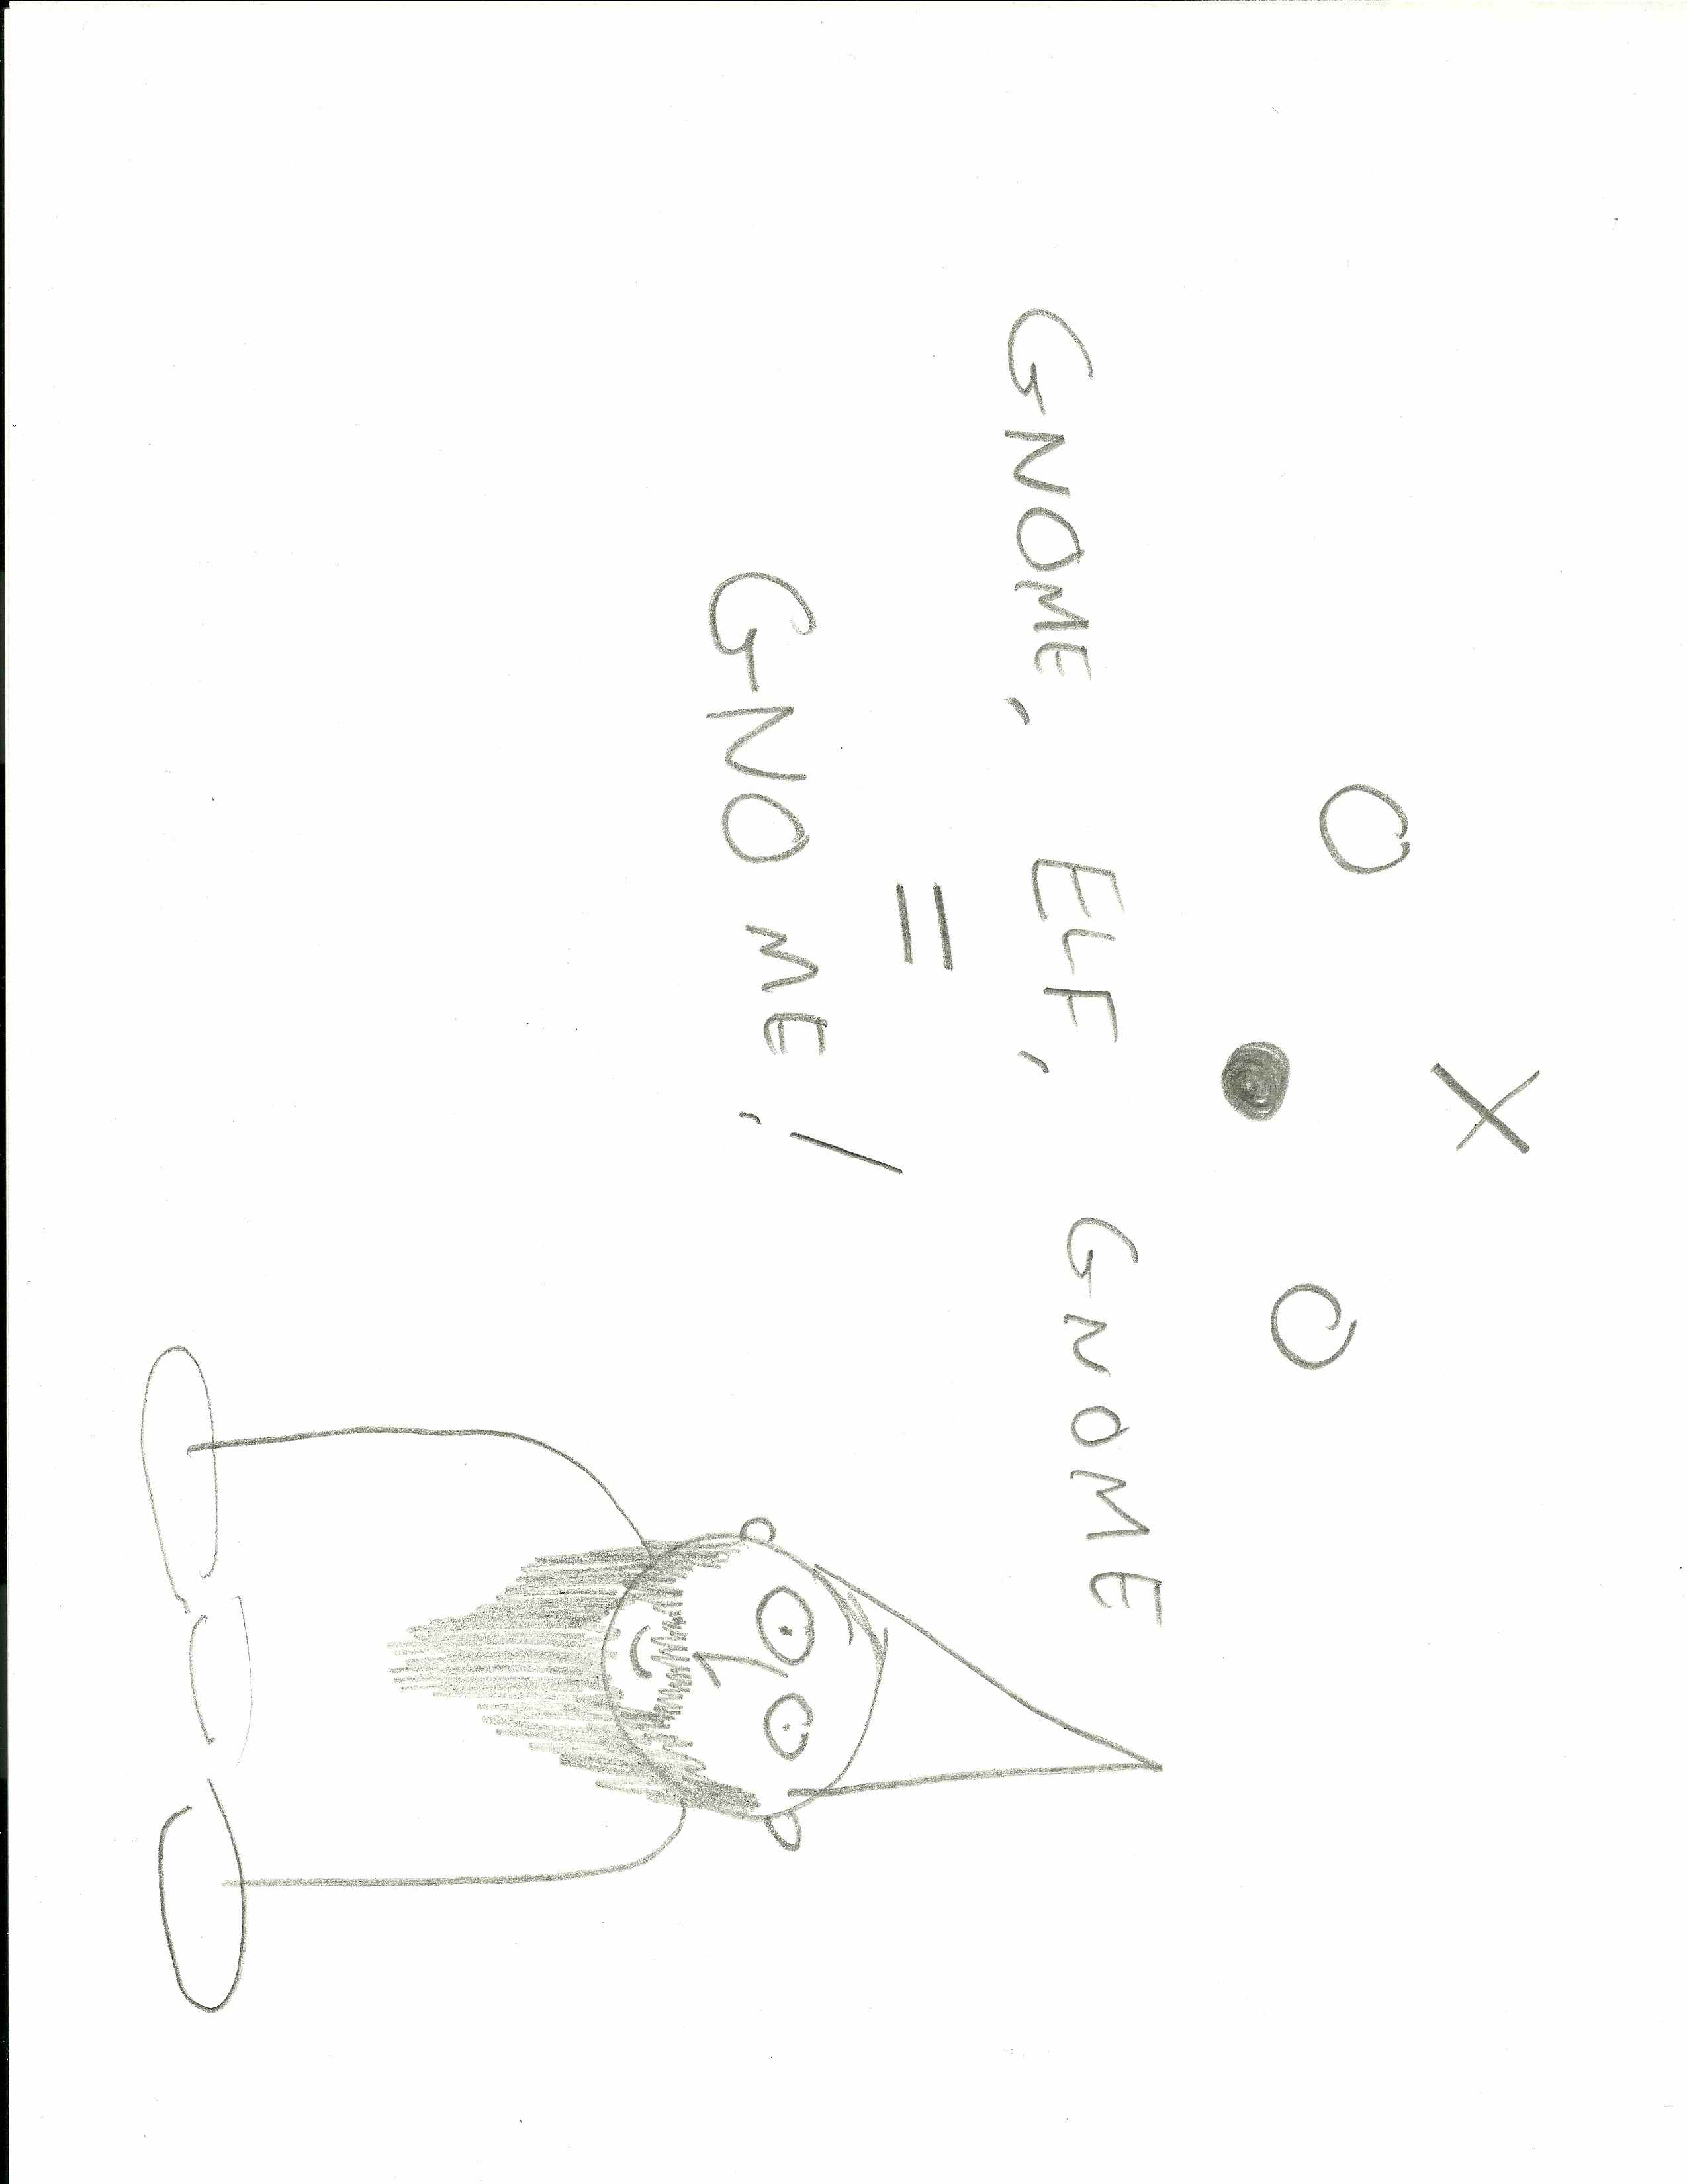 X
O
O
GNOME, ELF, GNOME
=
GNOME!